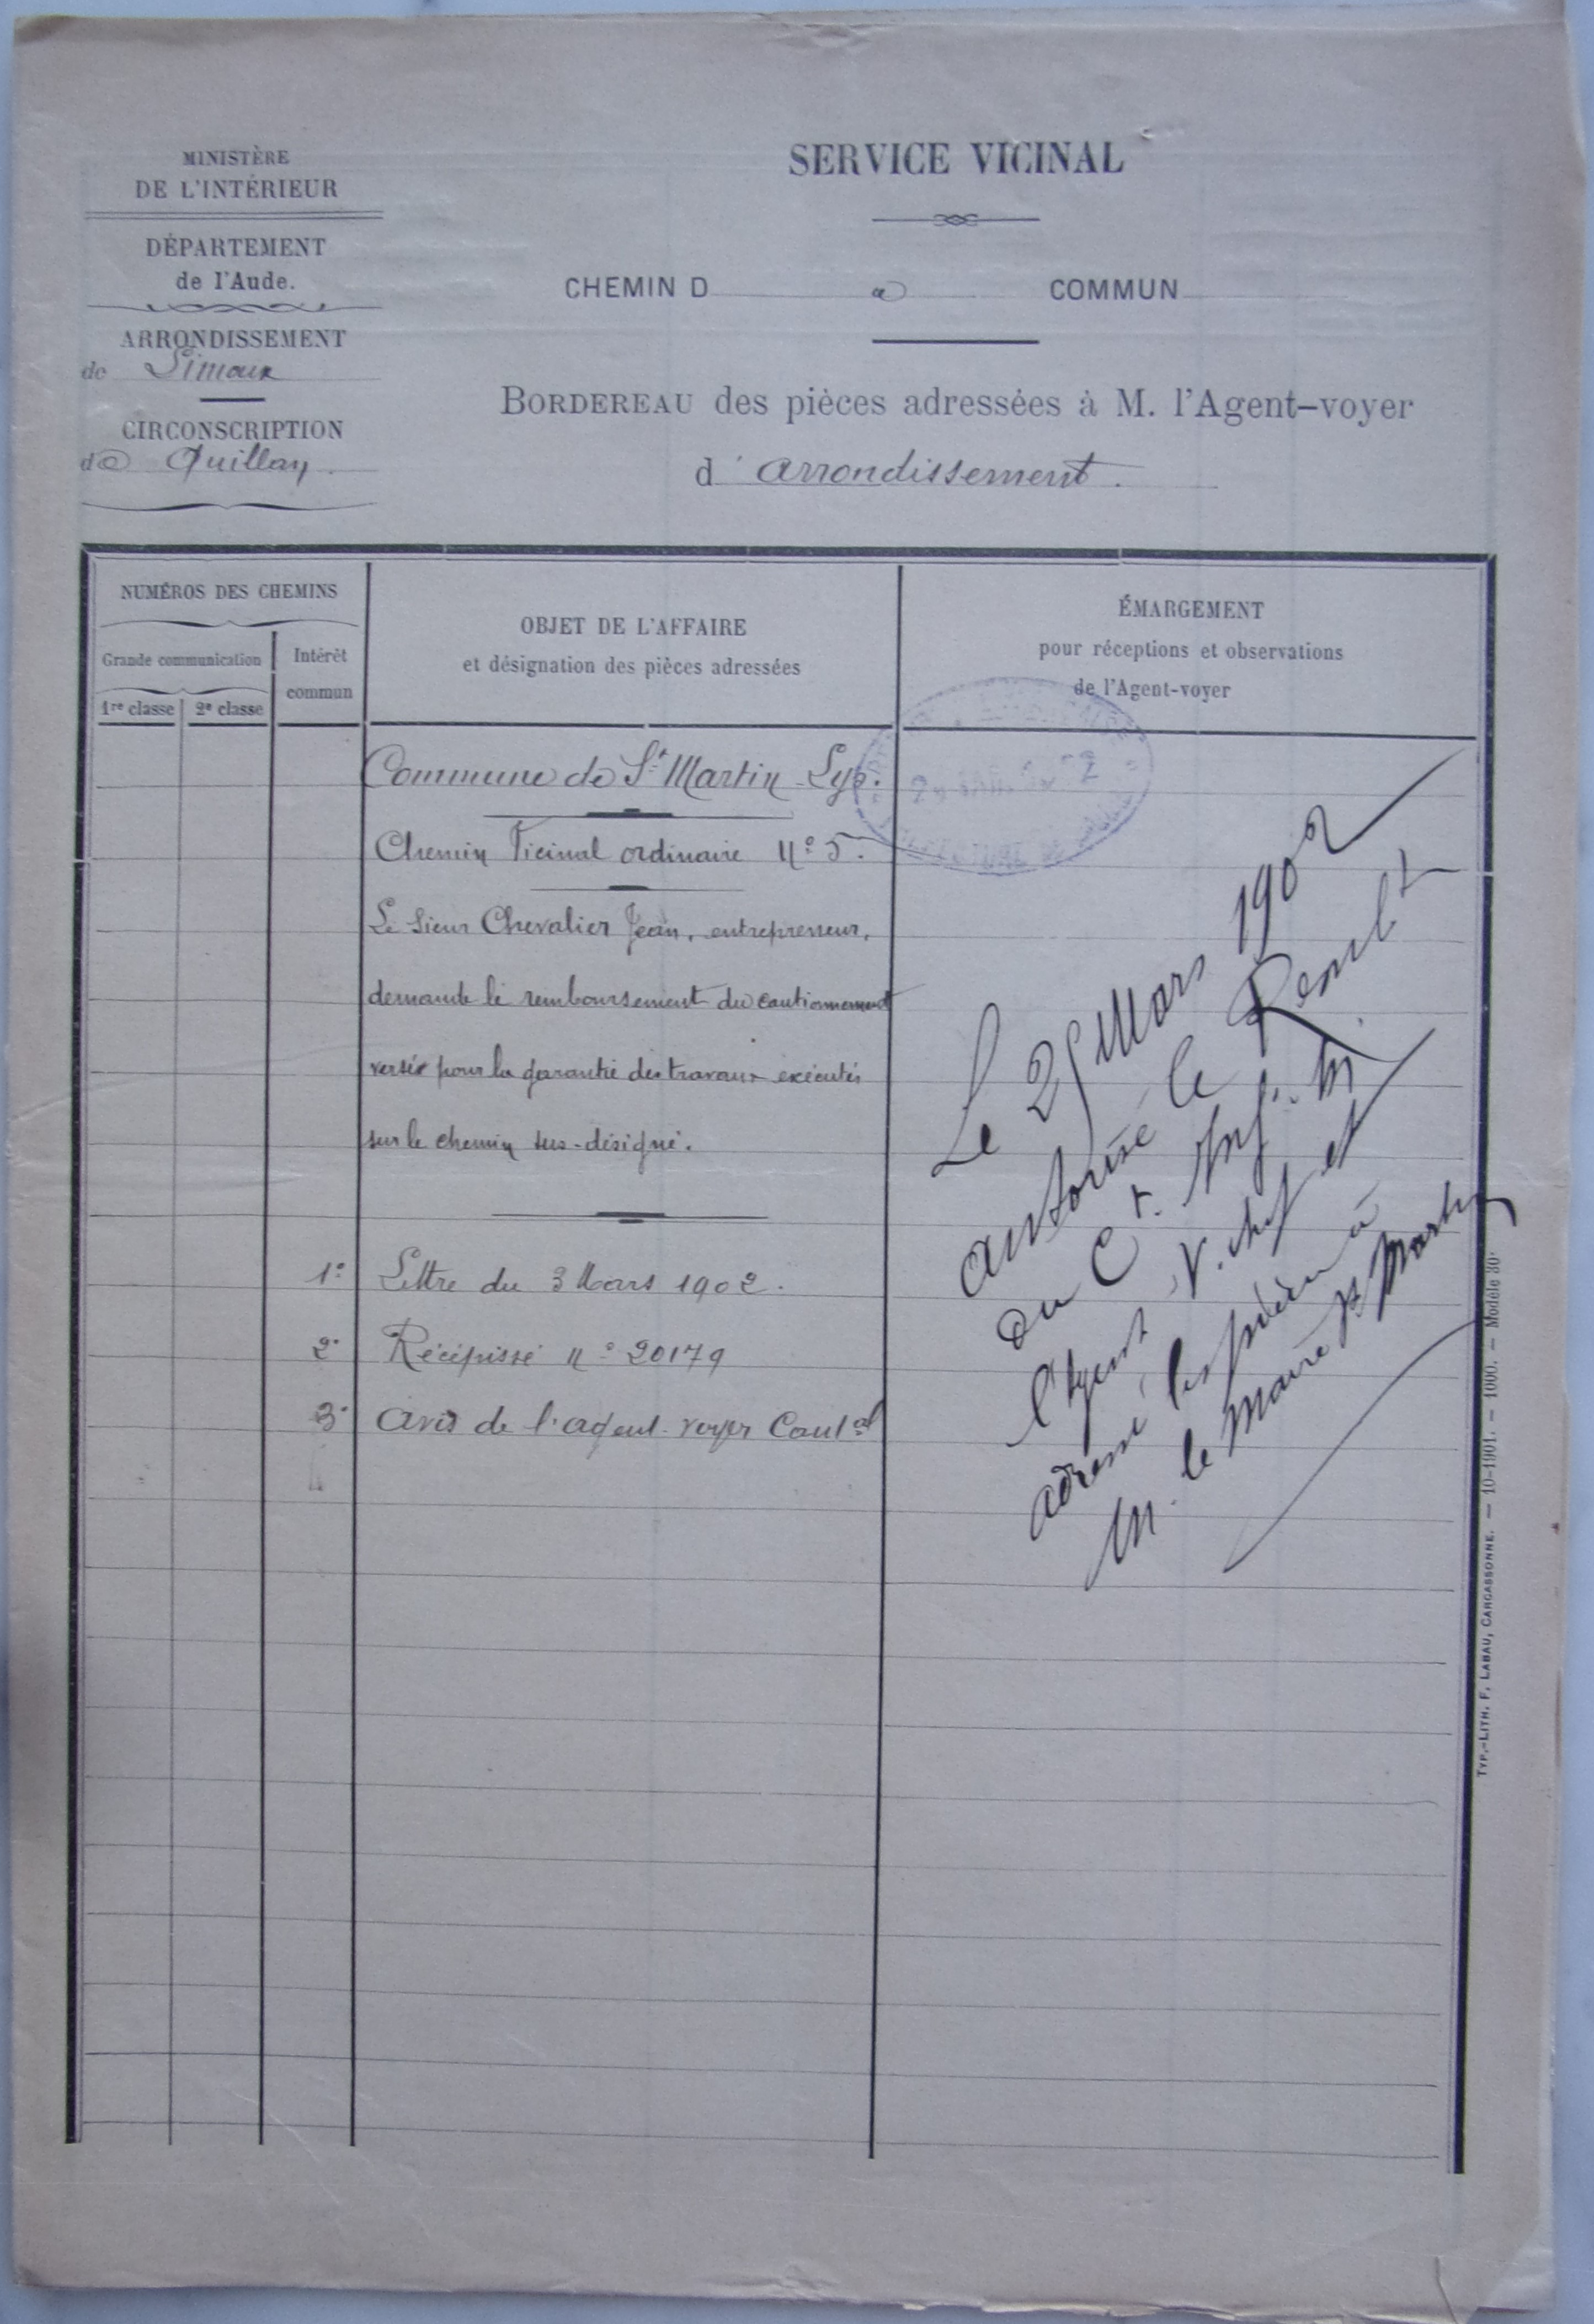 MINISTÈRE
DE L'INTÉRIEUR
DÉPARTEMENT
de l'Aude.
ARRONDISSEMENT
de Limoux
CIRCONSCRIPTION
de Quillan
SERVICE VICINAL
CHEMIN D COMMUN
BORDEREAU des pièces adressées à M. l'Agent-voyer
d'arrondissement.
NUMÉROS DES CHEMINS
Grande communication
1re classe
2e classe
Intérêt
commun
OBJET DE L'AFFAIRE
et désignation des pièces adressées
ÉMARGEMENT
pour réceptions et observations
de l'Agent-voyer
Commune de St Martin-Lys.
Chemin Vicinal ordinaire No 5.
Le Sieur Chevalier Jean, entrepreneur,
demande le remboursement du cautionnement
versé pour la garantie des travaux exécutés
sur le chemin sus-désigné.
1o Lettre du 3 Mars 1902.
2o Récépissé No 20179
3o Avis de l'agent-voyer Cantal
Le 25 Mars 1902
autorisé le Rembt
du Ct. M.
l'Agent V. chef et
adressé les pièces à
M. le Maire St Martin
TYP.-LITH. F. LABAU, CARCASSONNE. — 10-1901. — 1000. — Modèle 30.